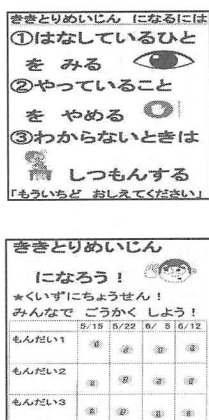 ききとりめいじん になるには
①はなしているひと
を みる
②やっていること
を やめる
③わからないときは
しつもんする
「もういちど おしえてください」
ききとりめいじん
になろう!
★くいずにちょうせん!
みんなで ごうかく しよう!
5/15 5/22 6/ 5 6/12
もんだい1
もんだい2
もんだい3